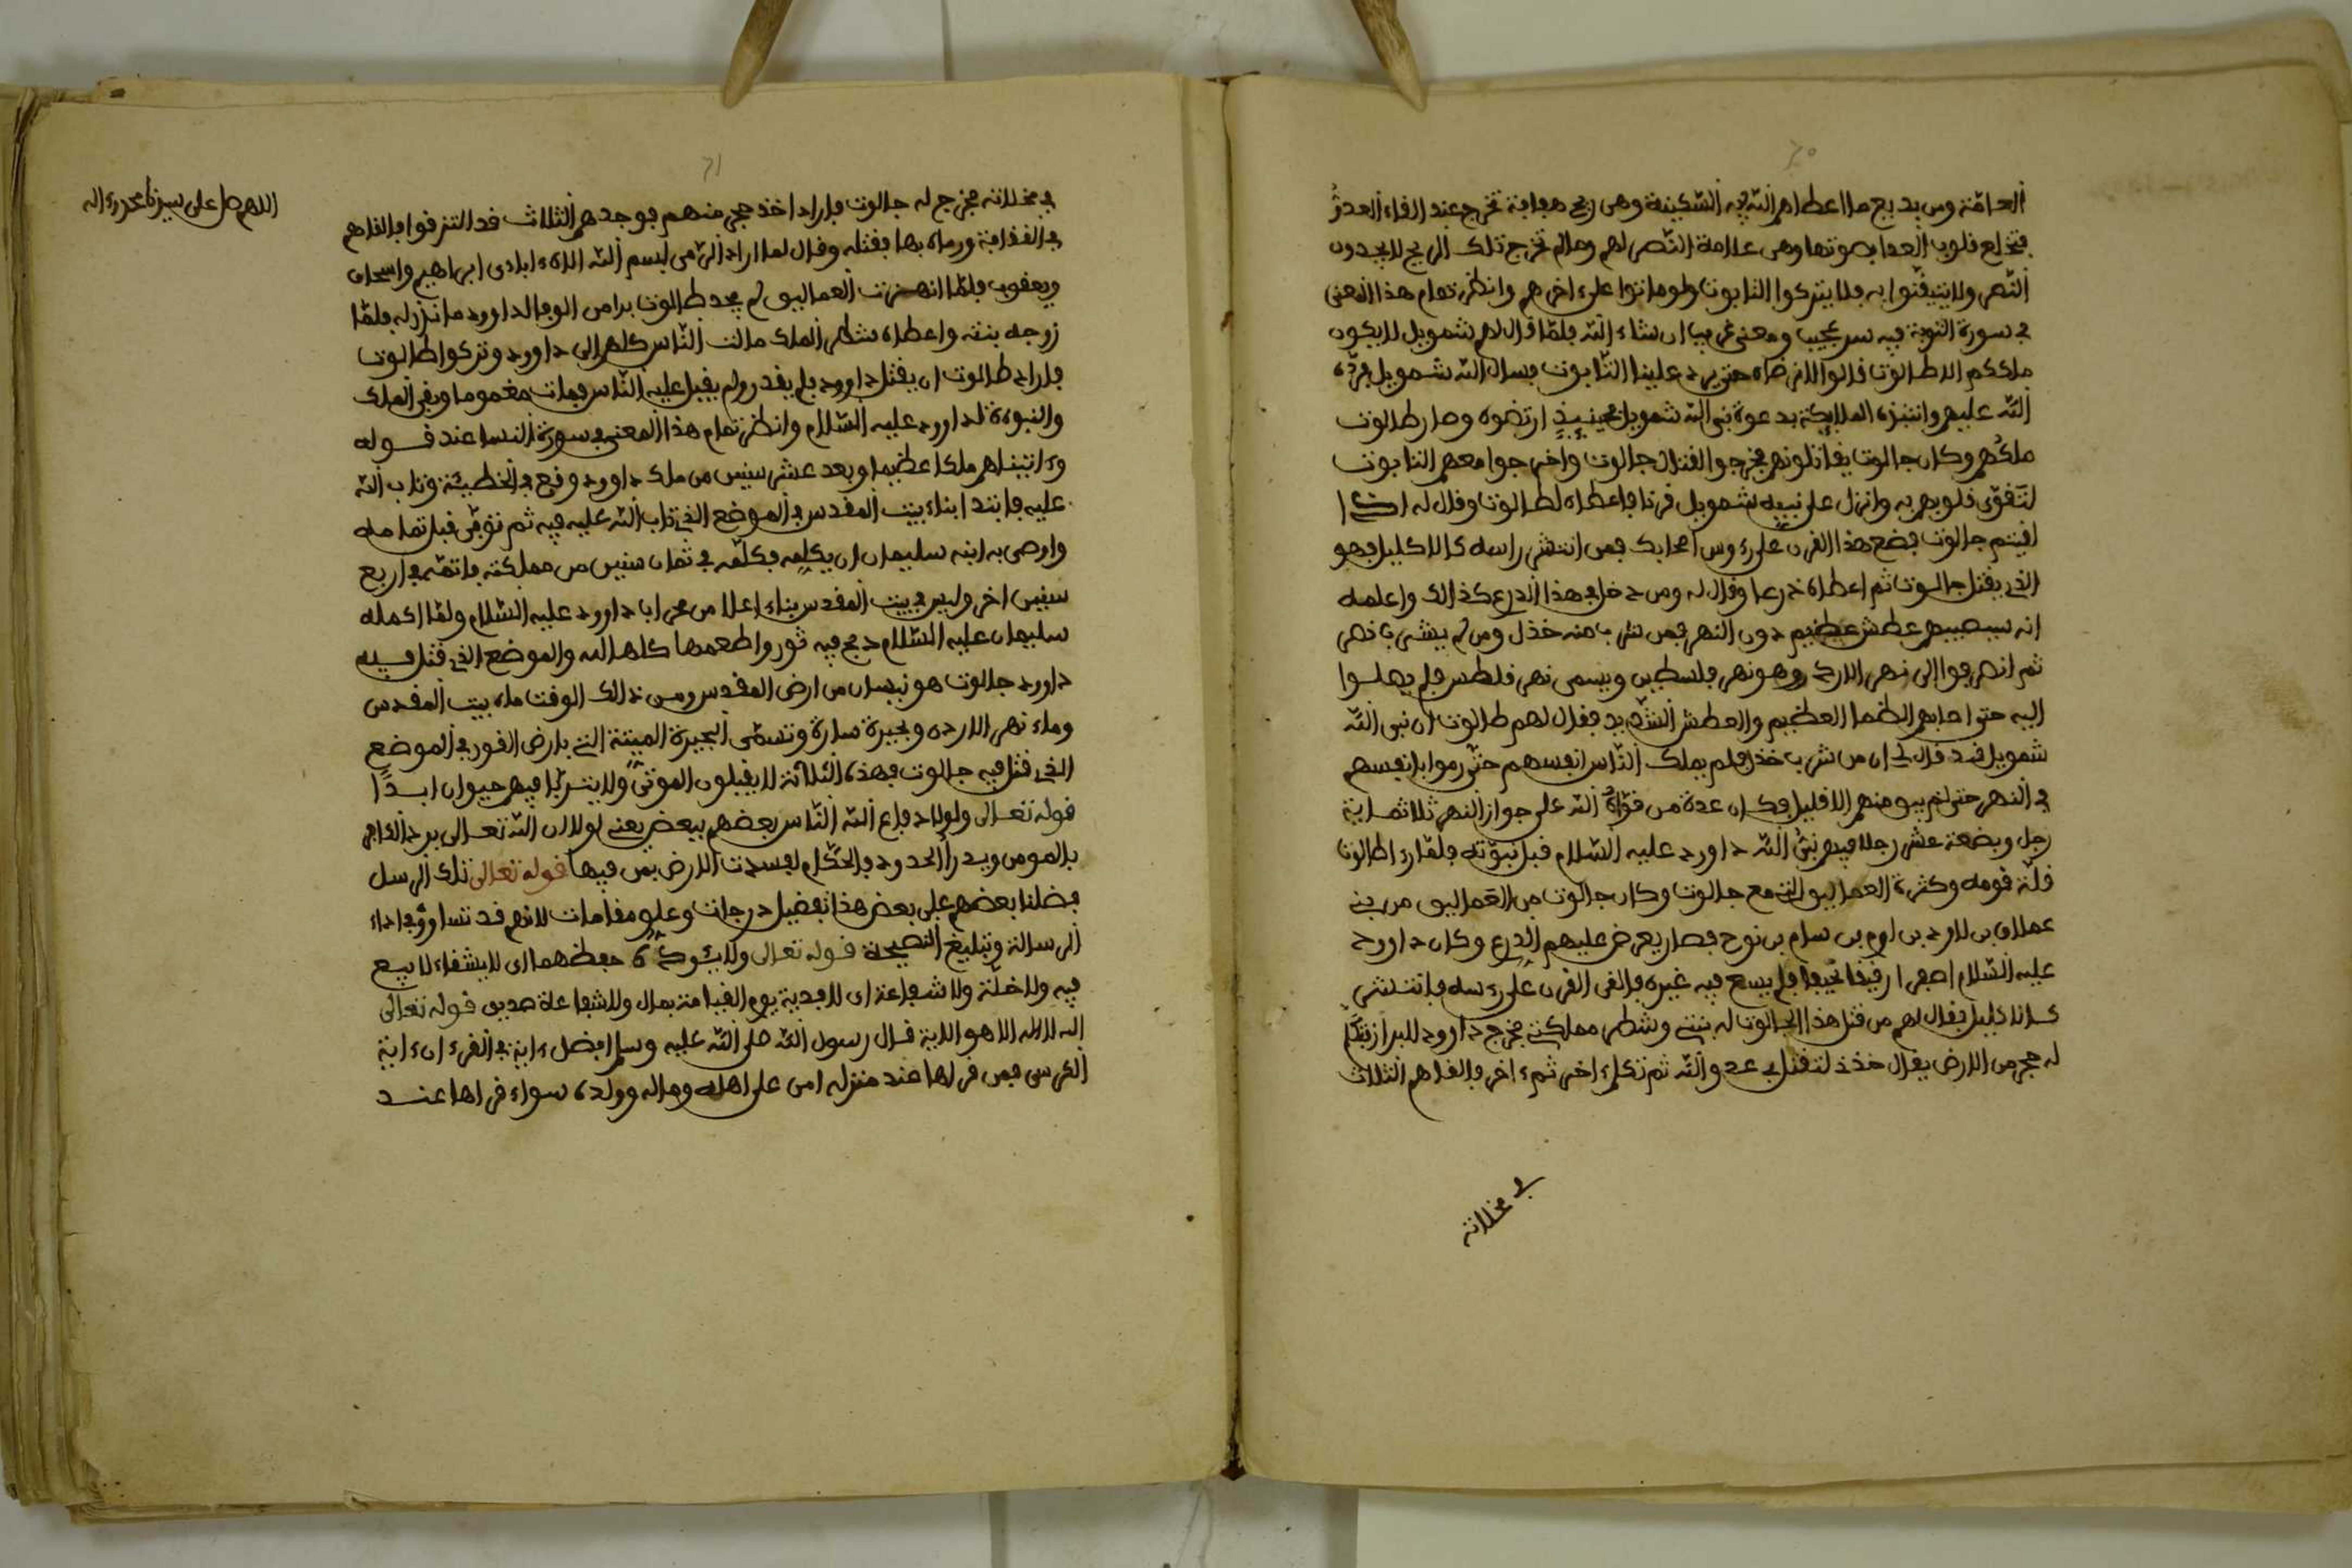 ٢٠
العامّة ومن بديع ما اعطاهم الله فيه السّكينة وهى ريح هفافة تخرج عند الفاء العدوّ
فتخلع فلوب العدا بصوتها وهى علامة النّصر لهم ومالم تخرج تلك الريح لا يجدون
النّصر ولا يتيفّنوا به فلا يتركوا التابوت ولو ماتوا على ءاخرهم وانظر تمام هذا المعنى
في سورة التوبة فيه سر عجيب ومعنى غريب ان شاء الله فلمّا فال لهم شمويل لا يكون
ملككم الا طالوت فالوا لا نرضاه حتى يرد علينا التّابوت فسال الله شمويل فردّه
الله عليهم وانتبزه الملايكة بدعوة نبى الله شمويل فحينيذٍ ارتضوه وصار طالوت
ملكهم وكان جالوت يفاتلونهم فخرجوا لفتال جالوت واخرجوا معهم التابوت
لتَفوّى فلوبهم به وانزل على نبيه شمويل فرنا فاعطاه لطالوت وفال له اذا
لفيتم جالوت فضع هذا الفرن على رءوس اصحابك فمن انتشر راسه كالاكليل فهو
الذى يفتل جالوت ثم اعطاه درعا وفال له ومن دخل في هذا الدرع كذلك واعلمه
انه سيصيبهم عطش عظيم دون النهر فمن شرب منه خذل ومن لم يشرب نصر
ثم انصرفوا الى نهر الاردن وهو نهر فلسطين ويسمى نهر فلطس فلم يصلوا
اليه حتى اصابهم الظما العظيم والعطش الشّديد ففال لهم طالوت ان نبى الله
شمويل فد فال لى ان من شرب خذل فلم يملك النّاس انفسهم حتّى رموا بانفسهم
في النهر حتى لم يبو منهم الا فليل فكان عدة من فوّاه الله على جواز النهر ثلاثماية
رجل وبضعة عشر رجلا فيهم نبىُّ الله داورد عليه السّلام فبل نبوّته فلمّا رءا طالوت
فلّة فومه وكثرة العماليو التى مع جالوت وكان جالوت من العماليو من بنى
عملاق بن لاود بن ارم بن سام بن نوح فصار يعرض عليهم الدرع وكان داورد
عليه السّلام اصفرا رفيفا نحيفا فلم يسع فيه غيره فالفى الفرن على رءسه فانتشر
كالاكليل ففال لهم من فتل هذا الجالوت له بنتى وشطر مملكتى فخرج داورد للبراز فتكلّم
له حجر من الارض يفال خذنى لتفتل بى عدو الله ثم تكلم ءاخر ثم ءاخر فالفاهم الثلاث
في مخلاته
٢١
في مخلاته فخرج له جالوت فاراد اخذ حجر منهم فوجدهم الثلاث فد التزفوا فالفاهم
في الفذافة ورماه بها ففتله وفال لما اراد الرّمى لبسم الله الاه ءابادى ابراهيم واسحاق
ويعفوب فلمّا انهزمت العماليو لم يجد طالوت برا من الوفا لداورد ما نزر له فلمّا
زوجه بنته واعطاه شطر الملك مالت النّاس كلهم الى داورد وتركوا طالوت
فاراد طالوت ان يفتل داورد فلم يفدر ولم يفبل عليه النّاس فمات مغموما وبفى الملك
والنبوءة لداورد عليه السّلام وانظر تمام هذا المعنى في سورة النسا عند فوله
وءاتيناهم ملكا عظيما وبعد عشر سنين من ملك داورد وفع في الخطيئة وتاب الله
عليه فابتدا بناء بيت المفدس في الموضع الذى تاب الله عليه فيه ثم توفّى فبل تمامه
واوصى به ابنه سليمان ان يكلمه فكلّمه في ثمان سنين من مملكته فاتمّه في اربع
سنين اخر وليس في بيت المفدس بناء اعلا من محراب داورد عليه السّلام ولمّا اكمله
سليمان عليه السّلام دبح فيه ثور واطعمها كلها الله والموضع الذى فتل فيه
داورد جالوت هو نبسان من ارض المفدس ومن ذلك الوفت ماء بيت المفدس
وماء نهر الاردن وبحيرة سارة وتسمّى البحيرة الميتة التى بارض الغور في الموضع
الذى فتل فيه جالوت فهذه الثلاثة لا يفبلون الموتى ولا يتربّا فيهم حيوان ابدًا
فوله تعالى ولولا دفاع الله النّاس بعضهم ببعض يعنى لولا ان الله تعالى يرد الفاجر
بالمومن ويدرأ الحدود بالحكّام لفسدت الارض بمن فيها فوله تعالى تلك الرسل
فضلنا بعضهم على بعض هذا تفضيل درجات وعلو مفامات لانهم فد تساووْا في اداء
الرسالة وتبليغ النصيحة فوله تعالى ولا يئوده حفظهما اى لا يشفاه لا بيع
فيه ولا خلّة ولا شفاعة اى لا فدية يوم الفيامة بمال ولا شفاعة صديق فوله تعالى
الله لا اله الا هو الاية فال رسول الله صلى الله عليه وسلم افضل ءاية في الفرءان ءاية
الكرسى فمن فرلها عند منزله امن على اهله وماله وولده سواء فراها عند
اللهم صل على سيدنا محمد وءاله